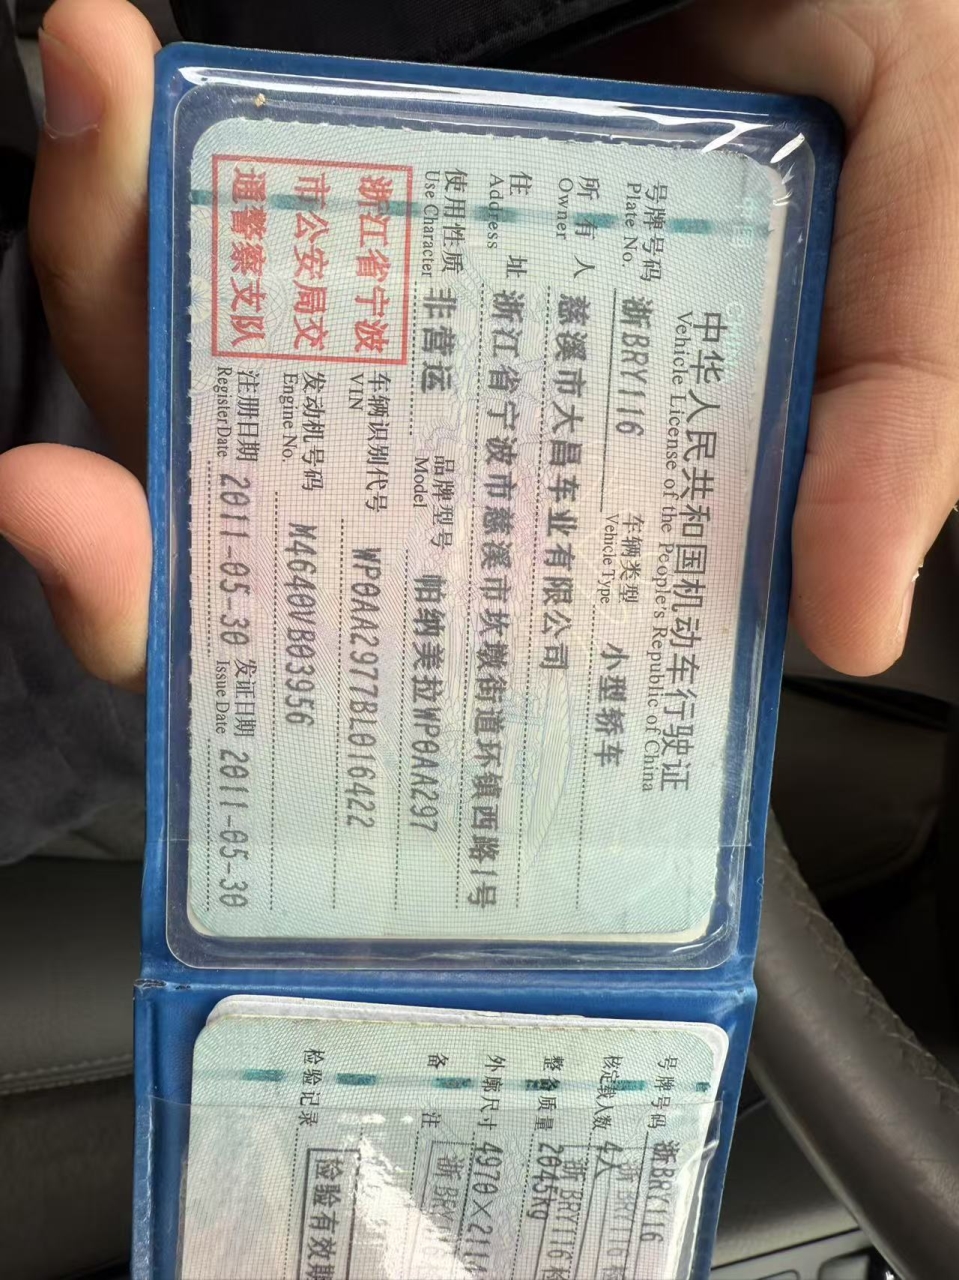 中华人民共和国机动车行驶证
Vehicle License of the People's Republic of China
号牌号码 浙BRY116 车辆类型 小型轿车
Plate No. Vehicle Type
所有人 慈溪市大昌车业有限公司
Owner
住址 浙江省宁波市慈溪市坎墩街道环镇西路1号
Address
使用性质 非营运 品牌型号 帕纳美拉WP0AA297
Use Character Model
浙江省宁波
市公安局交
通警察支队
车辆识别代号 WP0AA2977BL016422
VIN
发动机号码 M4640VB03956
Engine No.
注册日期 2011-05-30 发证日期 2011-05-30
Register Date Issue Date
号牌号码 浙BRY116
核定载人数 4人
整备质量 2045kg
外廓尺寸 4970×211
备注
检验记录
检验有效期